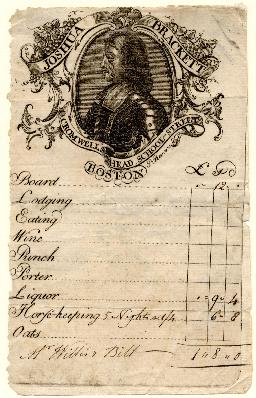 JOSHUA BRACKETT
CROMWELLS HEAD SCHOOL STREET
BOSTON
£ S D
Board 12
Lodging
Eating
Wine
Punch
Porter
Liquor 9 4
Horse-keeping 5 Nights 6 8
Oats
Mr Willis's Bill 1 8 0